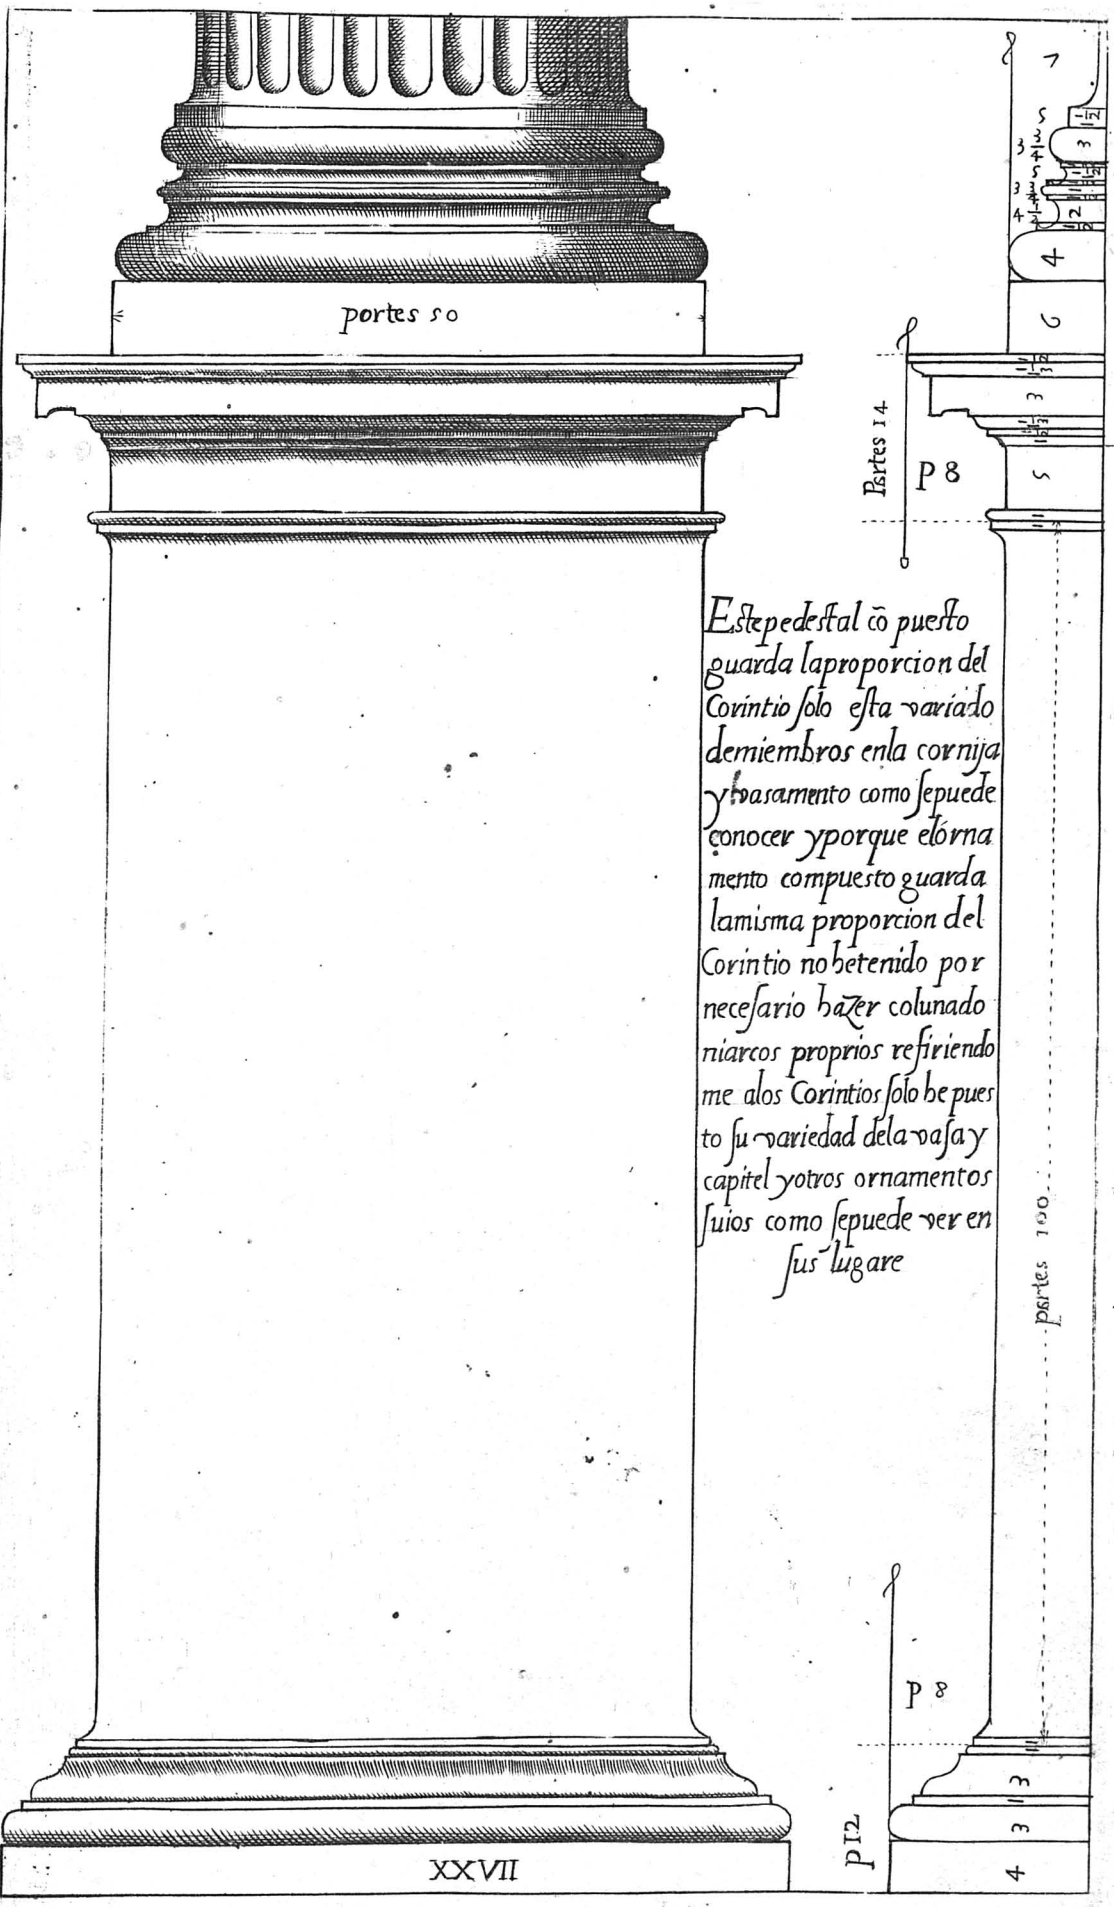 portes 50
Partes 14
P 8
Este pedestal cō puesto
guarda la proporcion del
Corintio ſolo eſta variado
de miembros en la cornija
y basamento como ſe puede
conocer y porque el órna
mento compuesto guarda
la misma proporcion del
Corintio no he tenido por
neceſario hazer colunado
ni arcos proprios refiriendo
me a los Corintios ſolo he pues
to ſu variedad de la vaſa y
capitel y otros ornamentos
ſuios como ſe puede ver en
ſus lugare
partes 100
P 8
P 12
XXVII
7
5
1 1/2
3 3/4
3
5
4 1/2
2
4
6
3
5
3
3
4